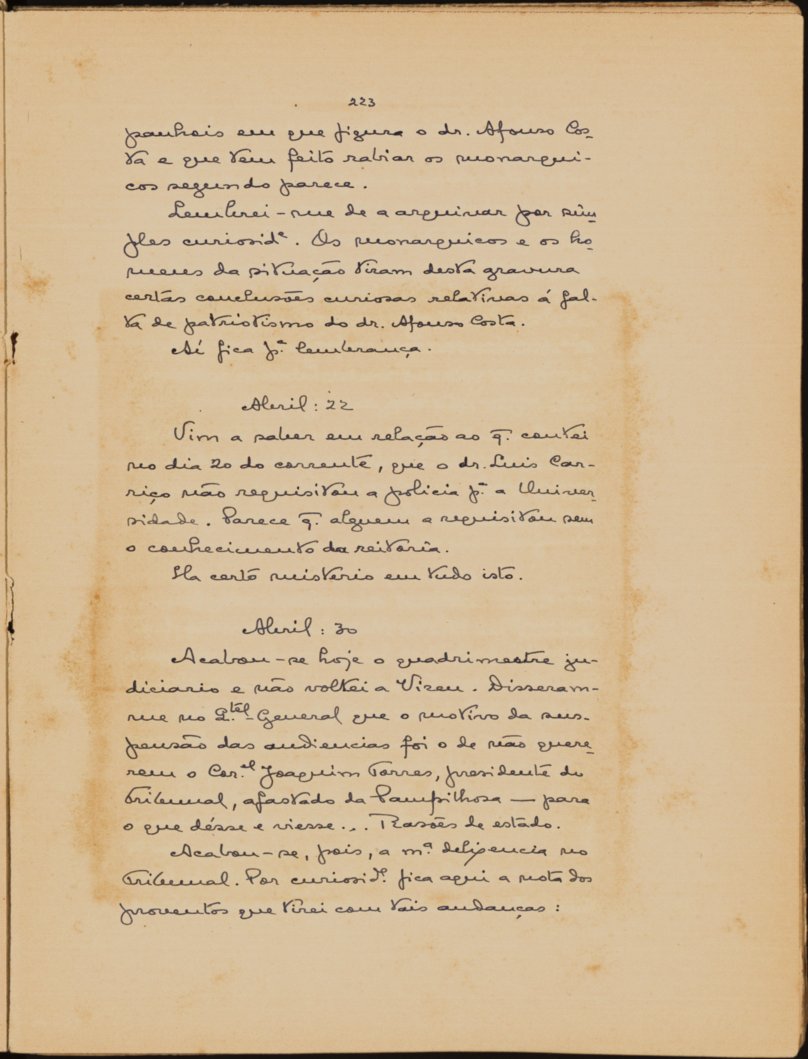 223
panhois em que figura o dr. Afonso Cos-
ta e que tem feito rabiar os monarqui-
cos segundo parece.
Lembrei-me de a arquivar por sim-
ples curiosid.e. Os monarquicos e os ho-
mens da situação tiram desta gravura
certas conclusões curiosas relativas á fal-
ta de patriotismo do dr. Afonso Costa.
Aí fica p.a lembrança.
Abril: 22
Vim a saber em relação ao q̃. contei
no dia 20 do corrente, que o dr. Luis Car-
riço não requisitou a policia p.a a Univer-
sidade. Parece q̃. alguem a requisitou sem
o conhecimento da reitoria.
Ha certo misterio em tudo isto.
Abril: 30
Acabou-se hoje o quadrimestre ju-
diciario e não voltei a Vizeu. Disseram-
me no Q.tel General que o motivo da sus-
pensão das audiencias foi o de não quere-
rem o Cor.el Joaquim Torres, presidente do
Tribunal, afastado da Pampilhosa — para
o que désse e viesse... Razões de estado.
Acabou-se, pois, a m.a deligencia no
Tribunal. Por curiosid.e fica aqui a nota dos
proventos que tirei com tais andanças: